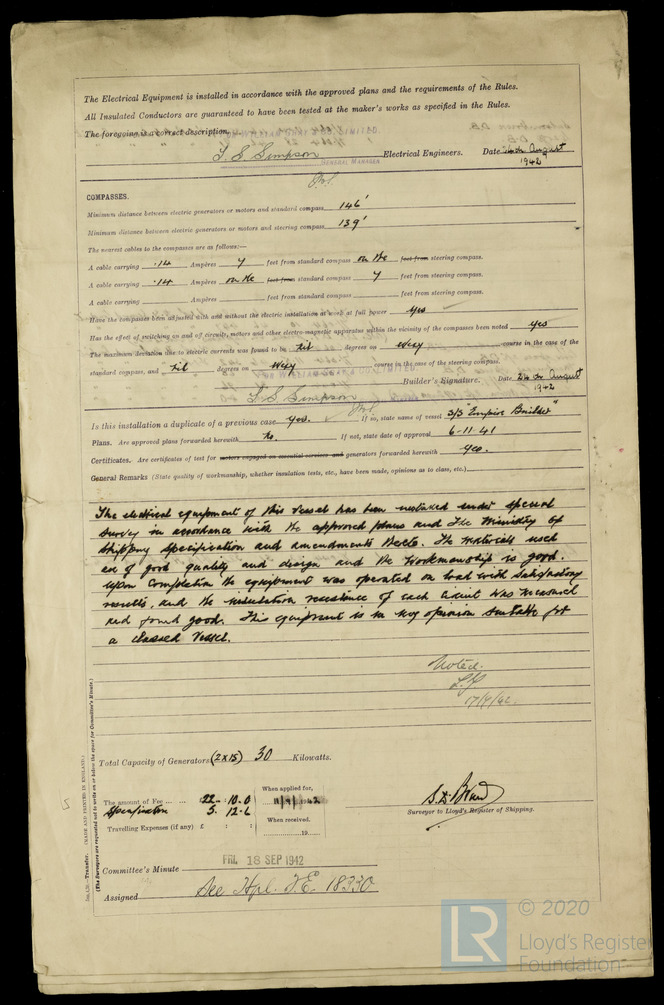 The Electrical Equipment is installed in accordance with the approved plans and the requirements of the Rules.
All Insulated Conductors are guaranteed to have been tested at the maker's works as specified in the Rules.
The foregoing is a correct description,
GENERAL MANAGER
L. S. Simpson Electrical Engineers. Date 24th August
1942
COMPASSES.
Minimum distance between electric generators or motors and standard compass 146'
Minimum distance between electric generators or motors and steering compass 139'
The nearest cables to the compasses are as follows:—
A cable carrying .14 Ampères 7 feet from standard compass on the feet from steering compass.
A cable carrying .14 Ampères on the feet from standard compass 7 feet from steering compass.
A cable carrying Ampères feet from standard compass feet from steering compass.
Have the compasses been adjusted with and without the electric installation at work at full power Yes
Has the effect of switching on and off circuits, motors and other electro-magnetic apparatus within the vicinity of the compasses been noted Yes
The maximum deviation due to electric currents was found to be Nil degrees on Every course in the case of the
standard compass, and Nil degrees on Every course in the case of the steering compass.
L. S. Simpson Builder's Signature. Date 24th August
1942
Is this installation a duplicate of a previous case Yes. If so, state name of vessel S/S "Empire Builder"
Plans. Are approved plans forwarded herewith No. If not, state date of approval 6-11-41
Certificates. Are certificates of test for motors engaged on essential services and generators forwarded herewith Yes.
General Remarks (State quality of workmanship, whether insulation tests, etc., have been made, opinions as to class, etc.)
The electrical equipment of this vessel has been installed under special
survey in accordance with the approved plans and the Ministry of
Shipping specification and amendments thereto. The materials used
are of good quality and design and the workmanship is good.
Upon completion the equipment was operated on load with satisfactory
results, and the insulation resistance of each circuit was measured
and found good. This equipment is in my opinion suitable for
a classed vessel.
Noted.
17/9/42
Total Capacity of Generators (2x15) 30 Kilowatts.
The amount of Fee 22-10-0
Specification 5. 12-6
Travelling Expenses (if any) £ : :
When applied for,
11/9/1942
When received,
19
Surveyor to Lloyd's Register of Shipping.
Committee's Minute FRI. 18 SEP 1942
Assigned See Hpl. F.E. 18330
Transfer. (MADE AND PRINTED IN ENGLAND.)
(The Surveyors are requested not to write on or below the space for Committee's Minute.)
LR
© 2020
Lloyd's Register
Foundation